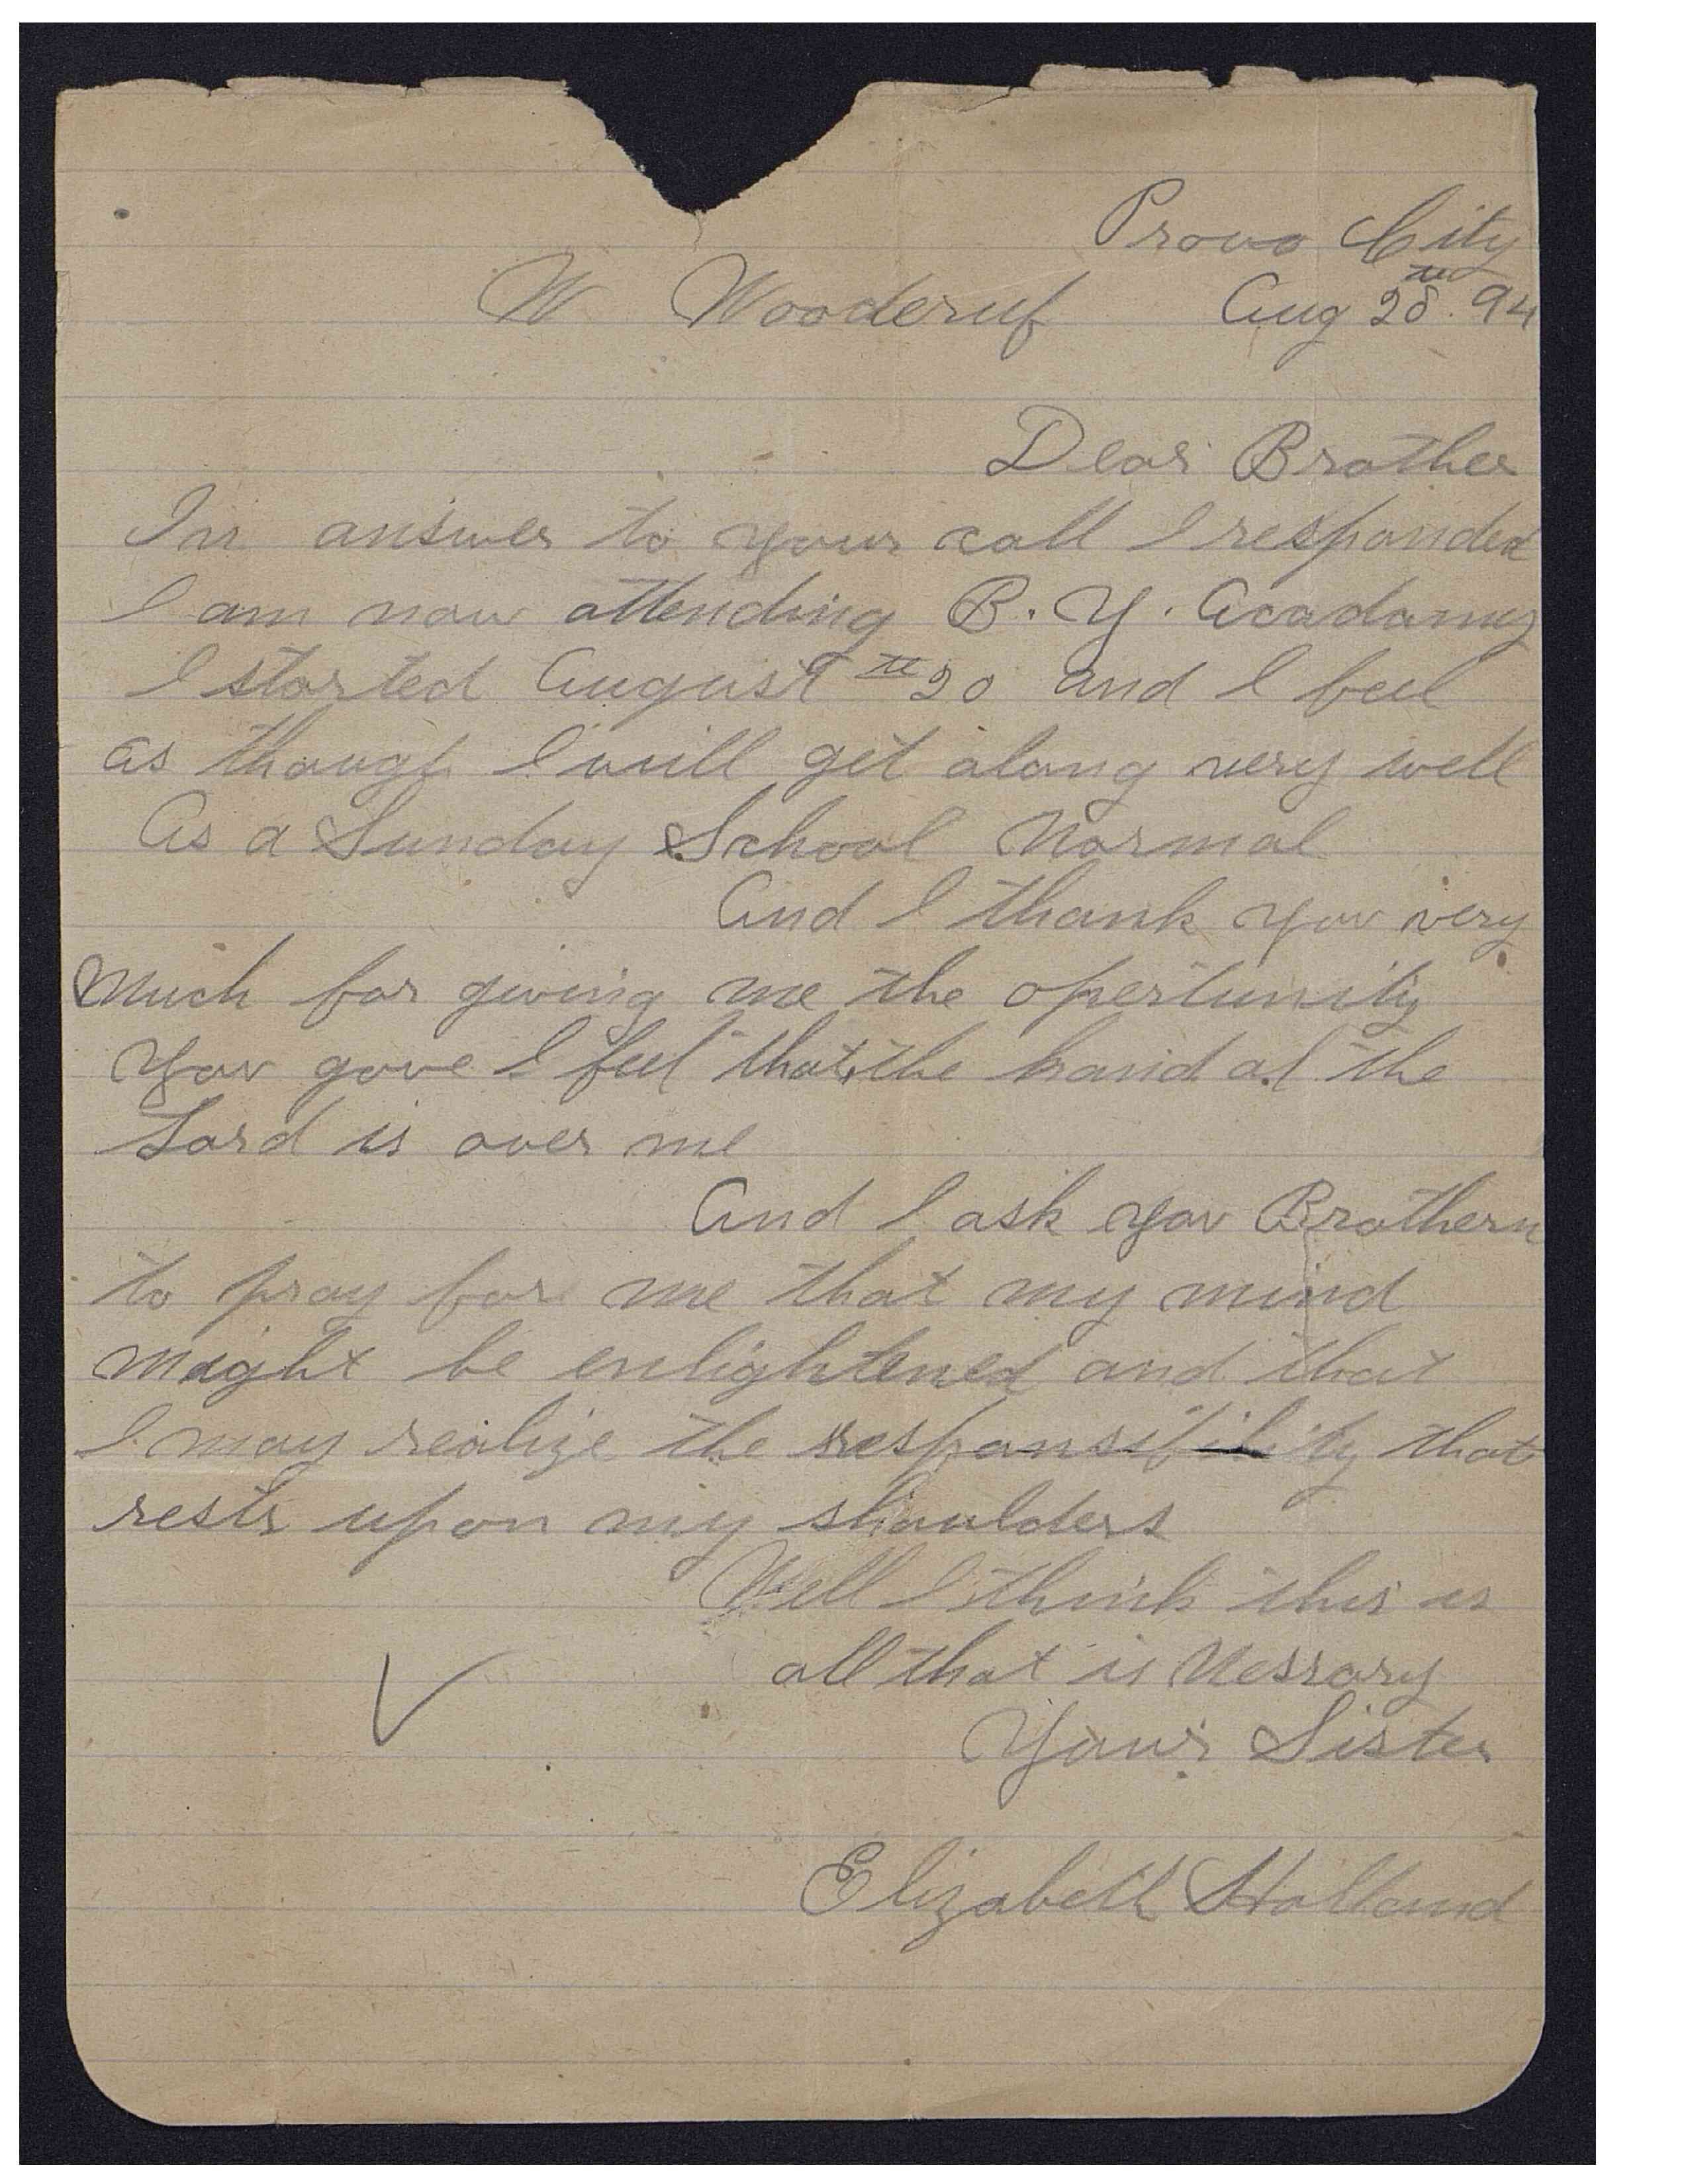 Provo City
W Wooderuf Aug 28th. 94
Dear Brother
In answer to your call I responded
I am now attending B. Y. Acadamy
I started August th20 and I feel
as though I will get along very well
As a Sunday School Normal
And I thank you very
Much for giving me the opertunity
You gave I feel that the hand of the
Lord is over me
And I ask you Brothern
to pray for me that my mind
might be enlightened and that
I may realize the responsibility that
rests upon my shoulders
Well I think this is
all that is Nessary
Your Sister
Elizabeth Holland